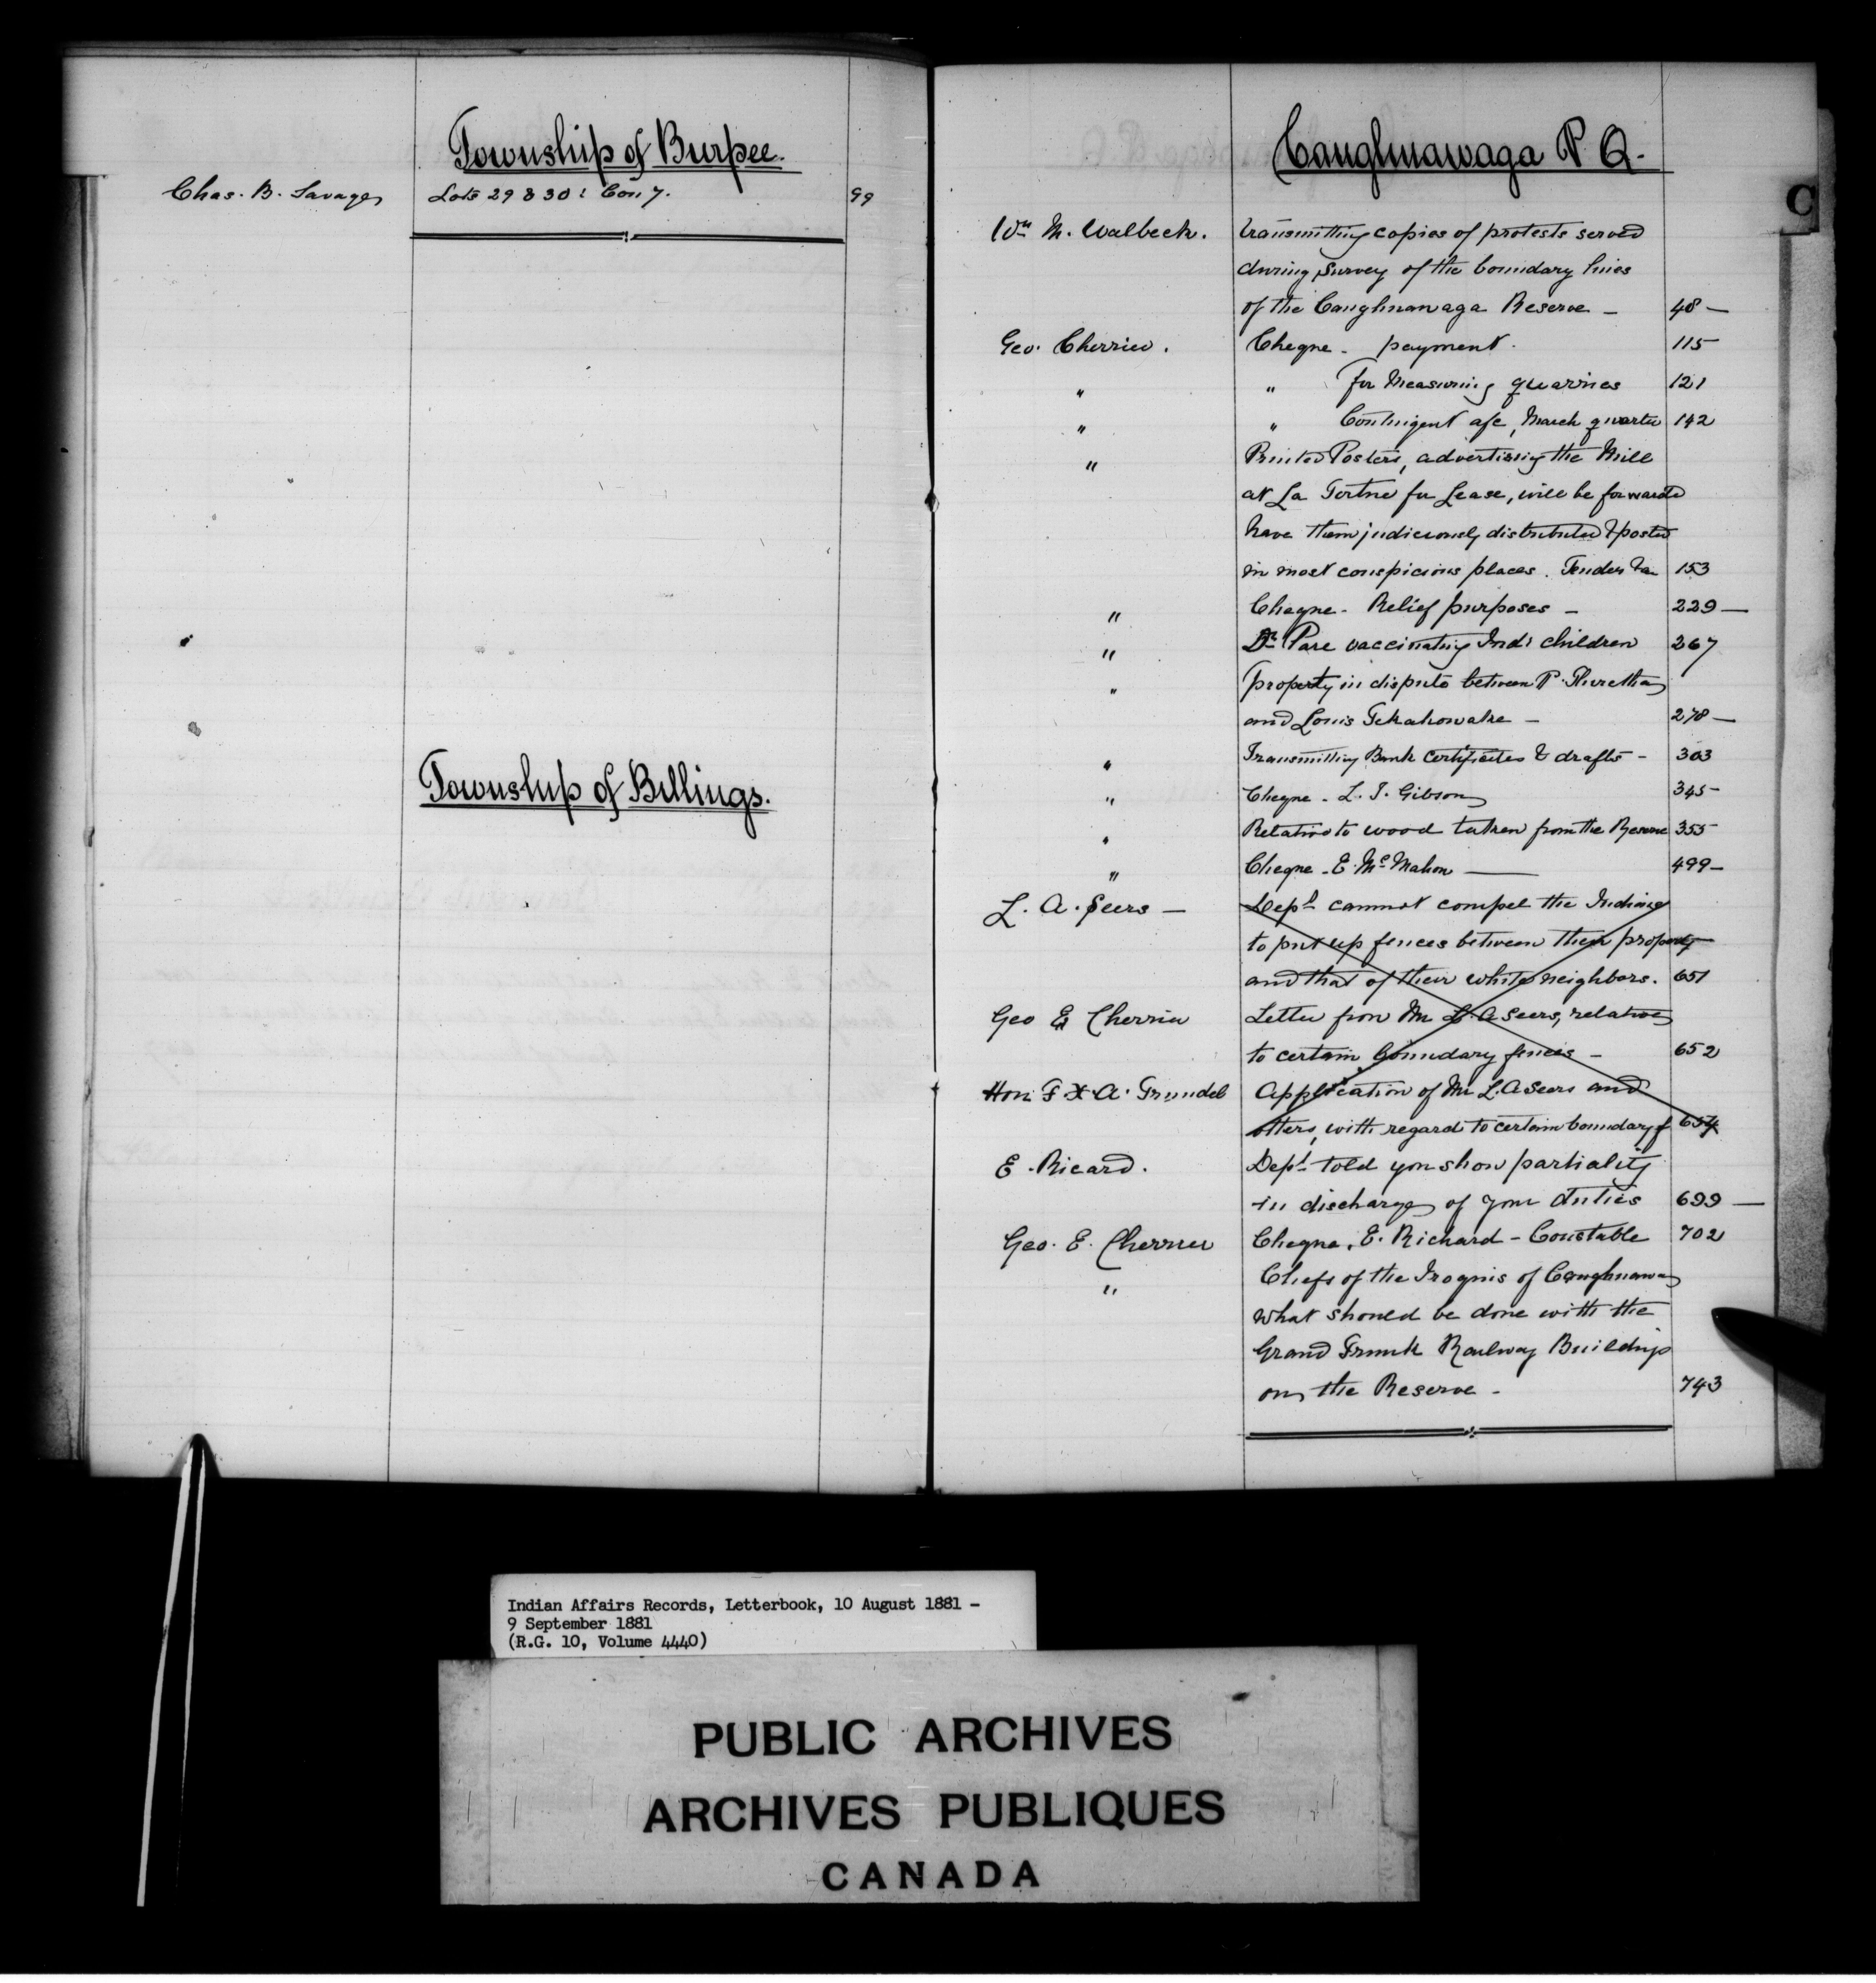 Township of Burpee.
Chas. B. Savage Lots 29 & 30 : Con 7. 99
Township of Billings.
Caughnawaga P Q.
C
Wm M. Walbeck. transmitting copies of protests served
during survey of the boundary lines
of the Caughnawaga Reserve - 48 -
Geo. Cherrier. Cheque - payment. 115
" " for Measuring quarries 121
" " Contingent a/c, March quarter 142
" Printed Posters, advertising the Mill
at La Tortue for Lease, will be forwarded
have them judiciously distributed & posted
in most conspicious places. Tender 153
" Cheque - Relief purposes - 229 -
" Dr Pare vaccinating Ind: children 267
" property in dispute between P.
and Louis Tekahowake - 278 -
" Transmitting Bank certificates & drafts - 303
" Cheque - L. J. Gibson 345 -
" Relative to wood taken from the Reserve 355
" Cheque - E. McMahon - 499 -
L. A. Seers - Dept cannot compel the Indians
to put up fences between their property
and that of their white neighbors. 651
Geo E Cherrier Letter from Mr L. A Seers, relative
to certain boundary fences - 652
Hon. F. X. A. Trundel Application of Mr L. A Seers and
others, with regard to certain boundary f 654
E. Ricard. Dept told you show partiality
in discharge of your duties 699 -
Geo. E. Cherrier Cheque, E. Richard - Constable 702
" Chiefs of the Iroquis of Caughnawa
what should be done with the
Grand Trunk Railway Buildings
on the Reserve - 743
Indian Affairs Records, Letterbook, 10 August 1881 -
9 September 1881
(R.G. 10, Volume 4440)
PUBLIC ARCHIVES
ARCHIVES PUBLIQUES
CANADA